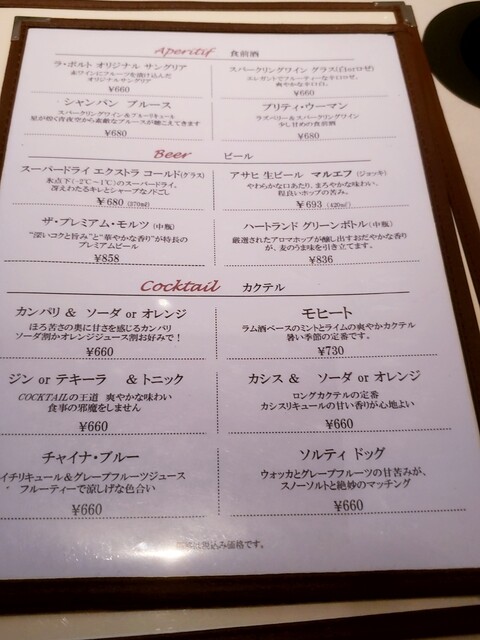 Aperitif 食前酒
ラ・ポルト オリジナル サングリア
赤ワインにフルーツを漬け込んだ
オリジナルサングリア
¥660
スパークリングワイン グラス(白orロゼ)
エレガントでフルーティーな辛口ロゼ、
爽やかな辛口白。
¥660
シャンパン ブルース
スパークリングワイン&ブルーリキュール
星が煌く青夜空から素敵なブルースが聴こえてきます
¥680
プリティ・ウーマン
ラズベリー&スパークリングワイン
少し甘めの食前酒
¥680
Beer ビール
スーパードライ エクストラ コールド(グラス)
氷点下(-2℃~1℃)のスーパードライ。
冴えわたるキレとシャープなノドごし
¥680 (370ml)
アサヒ 生ビール マルエフ (ジョッキ)
やわらかな口あたり、まろやかな味わい、
程良いホップの苦み。
¥693 (420ml)
ザ・プレミアム・モルツ (中瓶)
"深いコクと旨み"と"華やかな香り"が特長の
プレミアムビール
¥858
ハートランド グリーンボトル (中瓶)
厳選されたアロマホップが醸し出すおだやかな香り
が、麦のうま味を引き立てます。
¥836
Cocktail カクテル
カンパリ & ソーダ or オレンジ
ほろ苦さの奥に甘さを感じるカンパリ
ソーダ割かオレンジジュース割お好みで!
¥660
モヒート
ラム酒ベースのミントとライムの爽やかカクテル
暑い季節の定番です。
¥730
ジン or テキーラ & トニック
COCKTAILの王道 爽やかな味わい
食事の邪魔をしません
¥660
カシス & ソーダ or オレンジ
ロングカクテルの定番
カシスリキュールの甘い香りが心地よい
¥660
チャイナ・ブルー
イチリキュール&グレープフルーツジュース
フルーティーで涼しげな色合い
¥660
ソルティ ドッグ
ウォッカとグレープフルーツの甘苦みが、
スノーソルトと絶妙のマッチング
¥660
は税込み価格です。